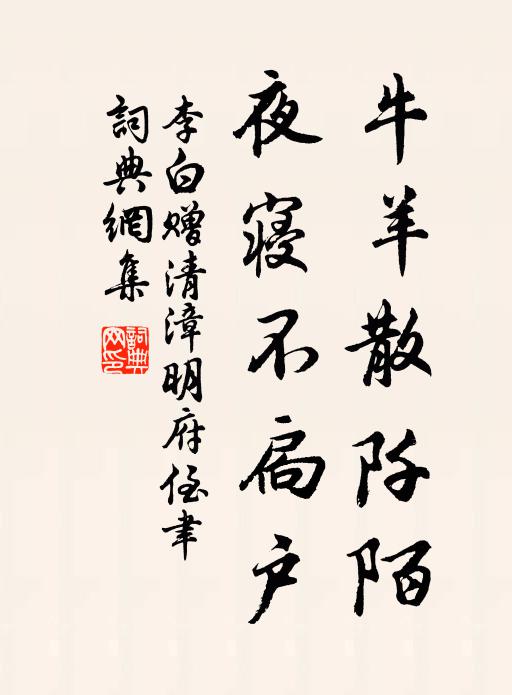 牛羊散阡陌
夜寢不扃戶
李白赠清漳明府侄聿
詞典網集
詞典网印